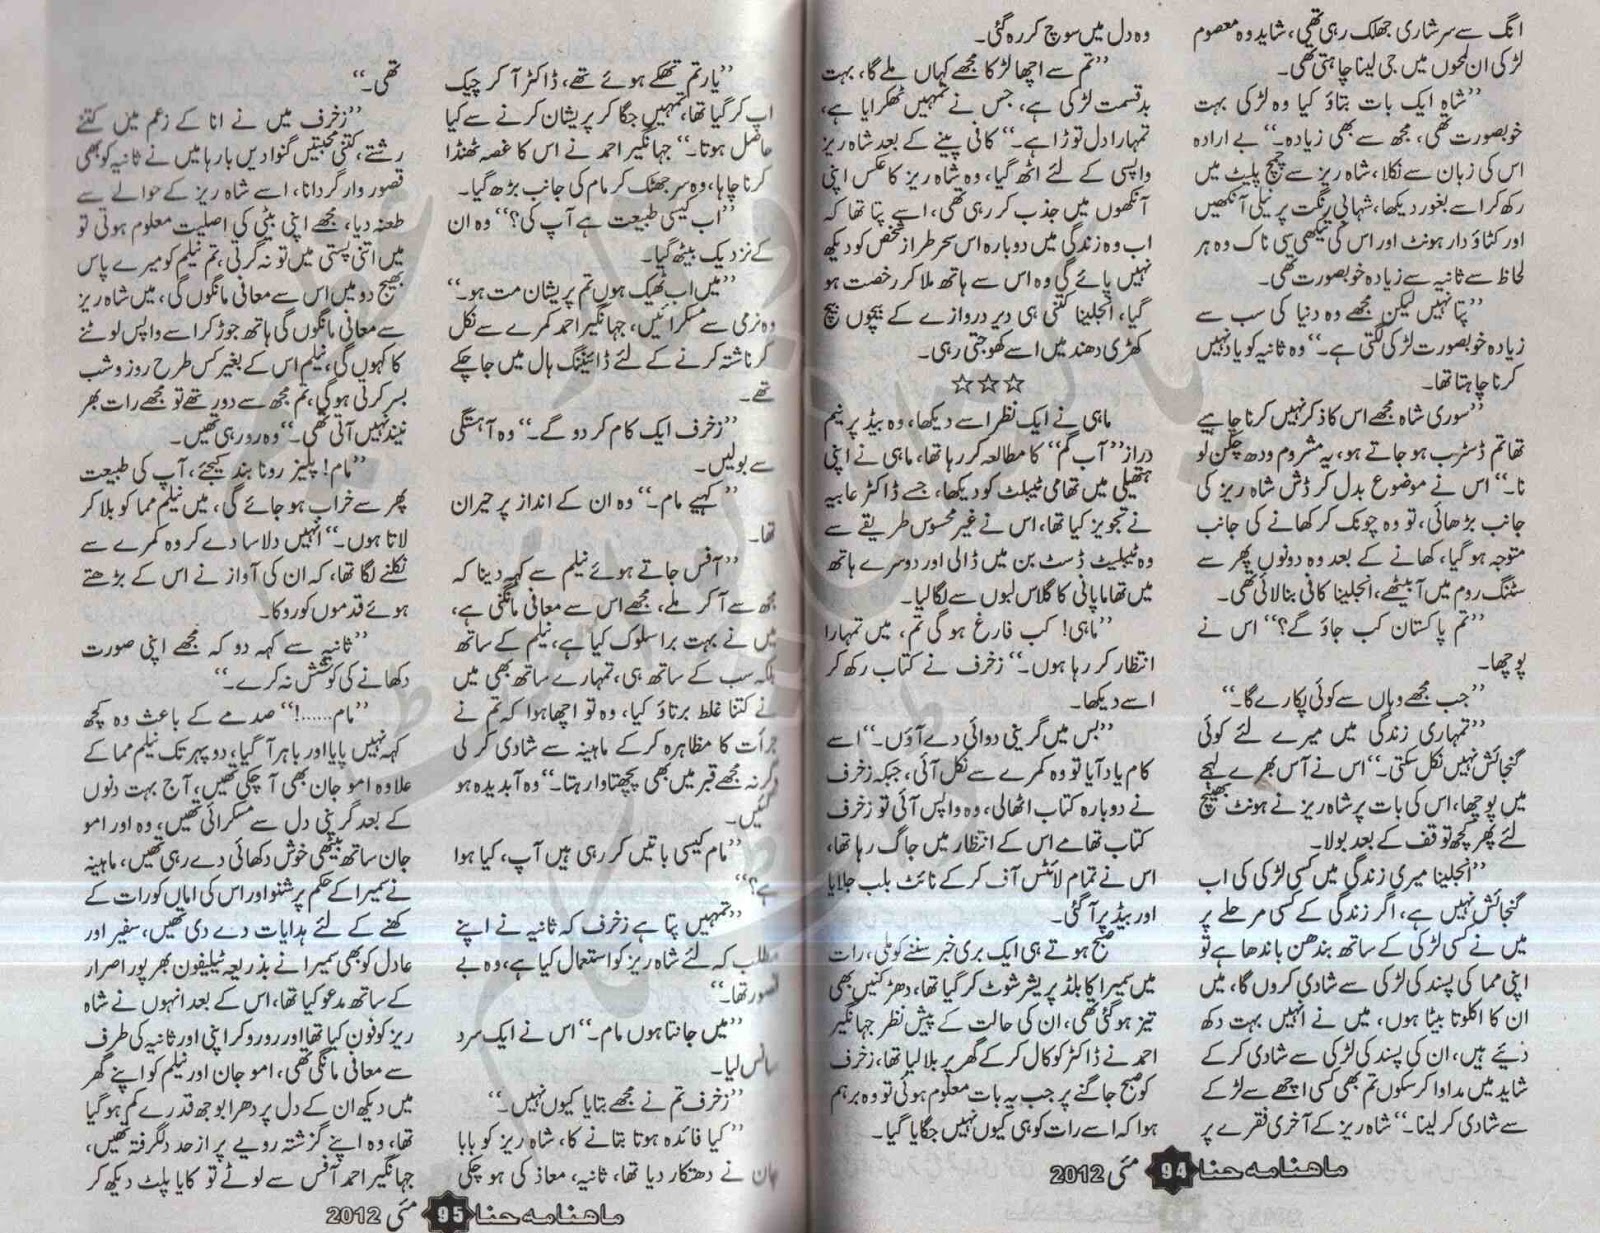 انگ سے سرشاری جھلک رہی تھی، شاید وہ معصوم
لڑکی ان لمحوں میں جی لینا چاہتی تھی۔
’’شاہ ایک بات بتاؤ کیا وہ لڑکی بہت
خوبصورت تھی، مجھ سے بھی زیادہ۔‘‘ بے ارادہ
اس کی زبان سے نکلا، شاہ ریز سے چمچ پلیٹ میں
رکھ کر اسے بغور دیکھا، شہابی رنگت پر نیلی آنکھیں
اور کٹاؤ دار ہونٹ اور اس کی تیکھی سی ناک وہ ہر
لحاظ سے ثانیہ سے زیادہ خوبصورت تھی۔
’’پتا نہیں لیکن مجھے وہ دنیا کی سب سے
زیادہ خوبصورت لڑکی لگتی ہے۔‘‘ وہ ثانیہ کو یاد نہیں
کرنا چاہتا تھا۔
’’سوری شاہ مجھے اس کا ذکر نہیں کرنا چاہیے
تھا تم ڈسٹرب ہو جاتے ہو، یہ مشروم ودھ چکن لو
نا۔‘‘ اس نے موضوع بدل کر ڈش شاہ ریز کی
جانب بڑھائی، تو وہ چونک کر کھانے کی جانب
متوجہ ہو گیا، کھانے کے بعد وہ دونوں پھر سے
سٹنگ روم میں آ بیٹھے، انجلینا کافی بنا لائی تھی۔
’’تم پاکستان کب جاؤ گے؟‘‘ اس نے
پوچھا۔
’’جب مجھے وہاں سے کوئی پکارے گا۔‘‘
’’تمہاری زندگی میں میرے لئے کوئی
گنجائش نہیں نکل سکتی۔‘‘ اس نے آس بھرے لہجے
میں پوچھا، اس کی بات پر شاہ ریز نے ہونٹ بھینچ
لئے پھر کچھ توقف کے بعد بولا۔
’’انجلینا میری زندگی میں کسی لڑکی کی اب
گنجائش نہیں ہے، اگر زندگی کے کسی مرحلے پر
میں نے کسی لڑکی کے ساتھ بندھن باندھا ہے تو
اپنی مما کی پسند کی لڑکی سے شادی کروں گا، میں
ان کا اکلوتا بیٹا ہوں، میں نے انہیں بہت دکھ
دئیے ہیں، ان کی پسند کی لڑکی سے شادی کر کے
شاید میں مداوا کر سکوں تم بھی کسی اچھے سے لڑکے
سے شادی کر لینا۔‘‘ شاہ ریز کے آخری فقرے پر
وہ دل میں سوچ کر رہ گئی۔
’’تم سے اچھا لڑکا مجھے کہاں ملے گا، بہت
بدقسمت لڑکی ہے، جس نے تمہیں ٹھکرایا ہے،
تمہارا دل توڑا ہے۔‘‘ کافی پینے کے بعد شاہ ریز
واپسی کے لئے اٹھ گیا، وہ شاہ ریز کا عکس اپنی
آنکھوں میں جذب کر رہی تھی، اسے پتا تھا کہ
اب وہ زندگی میں دوبارہ اس سحر طراز شخص کو دیکھ
نہیں پائے گی وہ اس سے ہاتھ ملا کر رخصت ہو
گیا، انجلینا کتنی ہی دیر دروازے کے بیچوں بیچ
کھڑی دھند میں اسے کھوجتی رہی۔
☆☆☆
ماہی نے ایک نظر اسے دیکھا، وہ بیڈ پر نیم
دراز ’’آب گم‘‘ کا مطالعہ کر رہا تھا، ماہی نے اپنی
ہتھیلی میں تھامی ٹیبلٹ کو دیکھا، جسے ڈاکٹر عابیہ
نے تجویز کیا تھا، اس نے غیر محسوس طریقے سے
وہ ٹیبلیٹ ڈسٹ بن میں ڈالی اور دوسرے ہاتھ
میں تھاما پانی کا گلاس لبوں سے لگا لیا۔
’’ماہی! کب فارغ ہو گی تم، میں تمہارا
انتظار کر رہا ہوں۔‘‘ زخرف نے کتاب رکھ کر
اسے دیکھا۔
’’بس میں گرینی دوائی دے آؤں۔‘‘ اسے
کام یاد آیا تو وہ کمرے سے نکل آئی، جبکہ زخرف
نے دوبارہ کتاب اٹھالی، وہ واپس آئی تو زخرف
کتاب تھامے اس کے انتظار میں جاگ رہا تھا،
اس نے تمام لائٹس آف کر کے نائٹ بلب جلایا
اور بیڈ پر آ گئی۔
صبح ہوتے ہی ایک بری خبر سننے کو ملی، رات
میں سمیرا کا بلڈ پریشر شوٹ کر گیا تھا، دھڑکنیں بھی
تیز ہو گئی تھی، ان کی حالت کے پیش نظر جہانگیر
احمد نے ڈاکٹر کو کال کر کے گھر پر بلا لیا تھا، زخرف
کو صبح جاگنے پر جب یہ بات معلوم ہوئی تو وہ برہم
ہوا کہ اسے رات کو ہی کیوں نہیں جگایا گیا۔
ماهنامه حنا 94 مئی 2012
’’یار تم تھکے ہوئے تھے، ڈاکٹر آ کر چیک
اپ کر گیا تھا، تمہیں جگا کر پریشان کرنے سے کیا
حاصل ہوتا۔‘‘ جہانگیر احمد نے اس کا غصہ ٹھنڈا
کرنا چاہا، وہ سر جھٹک کر مام کی جانب بڑھ گیا۔
’’اب کیسی طبیعت ہے آپ کی؟‘‘ وہ ان
کے نزدیک بیٹھ گیا۔
’’میں اب ٹھیک ہوں تم پریشان مت ہو۔‘‘
وہ نرمی سے مسکرائیں، جہانگیر احمد کمرے سے نکل
کر ناشتہ کرنے کے لئے ڈائننگ ہال میں جا چکے
تھے۔
’’زخرف ایک کام کر دو گے۔‘‘ وہ آہستگی
سے بولیں۔
’’کہیے مام۔‘‘ وہ ان کے انداز پر حیران
تھا۔
’’آفس جاتے ہوئے نیلم سے کہہ دینا کہ
مجھ سے آ کر ملے، مجھے اس سے معافی مانگنی ہے،
میں نے بہت برا سلوک کیا ہے، نیلم کے ساتھ
بلکہ سب کے ساتھ ہی، تمہارے ساتھ بھی میں
نے کتنا غلط برتاؤ کیا، وہ تو اچھا ہوا کہ تم نے
جرأت کا مظاہرہ کر کے ماہینہ سے شادی کر لی
وگرنہ مجھے قبر میں بھی پچھتاوا رہتا۔‘‘ وہ آبدیدہ ہو
گئیں۔
’’مام کیسی باتیں کر رہی ہیں آپ، کیا ہوا
ہے؟‘‘
’’تمہیں پتا ہے زخرف کہ ثانیہ نے اپنے
مطلب کہ لئے شاہ ریز کو استعمال کیا ہے، وہ بے
قصور تھا۔‘‘
’’میں جانتا ہوں مام۔‘‘ اس نے ایک سرد
سانس لیا۔
’’زخرف تم نے مجھے بتایا کیوں نہیں۔‘‘
’’کیا فائدہ ہوتا بتانے کا، شاہ ریز کو بابا
جان نے دھتکار دیا تھا، ثانیہ، معاذ کی ہو چکی
تھی۔‘‘
’’زخرف میں نے انا کے زعم میں کتنے
رشتے، کتنی محبتیں گنوا دیں بارہا میں نے ثانیہ کو بھی
قصور وار گردانا، اسے شاہ ریز کے حوالے سے
طعنہ دیا، مجھے اپنی بیٹی کی اصلیت معلوم ہوتی تو
میں اتنی پستی میں تو نہ گرتی، تم نیلم کو میرے پاس
بھیج دو میں اس سے معافی مانگوں گی، میں شاہ ریز
سے معافی مانگوں گی ہاتھ جوڑ کر اسے واپس لوٹنے
کا کہوں گی، نیلم اس کے بغیر کس طرح روز و شب
بسر کرتی ہو گی، تم مجھ سے دور تھے تو مجھے رات بھر
نیند نہیں آتی تھی۔‘‘ وہ رو رہی تھیں۔
’’مام! پلیز رونا بند کیجئے، آپ کی طبیعت
پھر سے خراب ہو جائے گی، میں نیلم مما کو بلا کر
لاتا ہوں۔‘‘ انہیں دلاسا دے کر وہ کمرے سے
نکلنے لگا تھا، کہ ان کی آواز نے اس کے بڑھتے
ہوئے قدموں کو روکا۔
’’ثانیہ سے کہہ دو کہ مجھے اپنی صورت
دکھانے کی کوشش نہ کرے۔‘‘
’’مام......!‘‘ صدمے کے باعث وہ کچھ
کہہ نہیں پایا اور باہر آ گیا، دوپہر تک نیلم مما کے
علاوہ امو جان بھی آ چکی تھیں، آج بہت دنوں
کے بعد گرینی دل سے مسکرائی تھیں، وہ اور امو
جان ساتھ بیٹھی خوش دکھائی دے رہی تھیں، ماہینہ
نے سمیرا کے حکم پر شنو اور اس کی اماں کو رات کے
کھنے کے لئے ہدایات دے دی تھیں، سفیر اور
عادل کو بھی سمیرا نے بذریعہ ٹیلیفون بھرپور اصرار
کے ساتھ مدعو کیا تھا، اس کے بعد انہوں نے شاہ
ریز کو فون کیا تھا اور رو رو کر اپنی اور ثانیہ کی طرف
سے معافی مانگی تھی، امو جان اور نیلم کو اپنے گھر
میں دیکھ ان کے دل پر دھرا بوجھ قدرے کم ہو گیا
تھا، وہ اپنے گزشتہ رویے پر از حد دلگرفتہ تھیں،
جہانگیر احمد آفس سے لوٹے تو کایا پلٹ دیکھ کر
ماهنامه حنا 95 مئی 2012